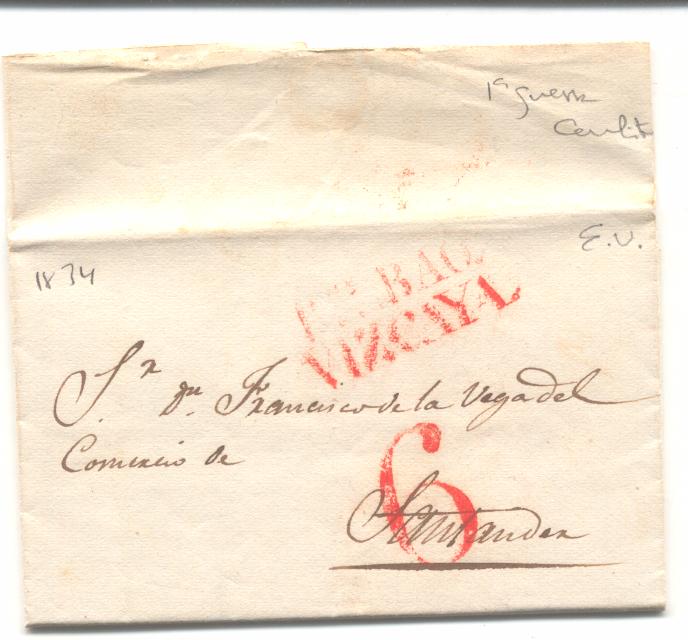 1ª guerra
Carlista
E.V.
1834
BILBAO
VIZCAYA
Sr. Dn. Francisco de la Vega del
Comercio de
6
Santander